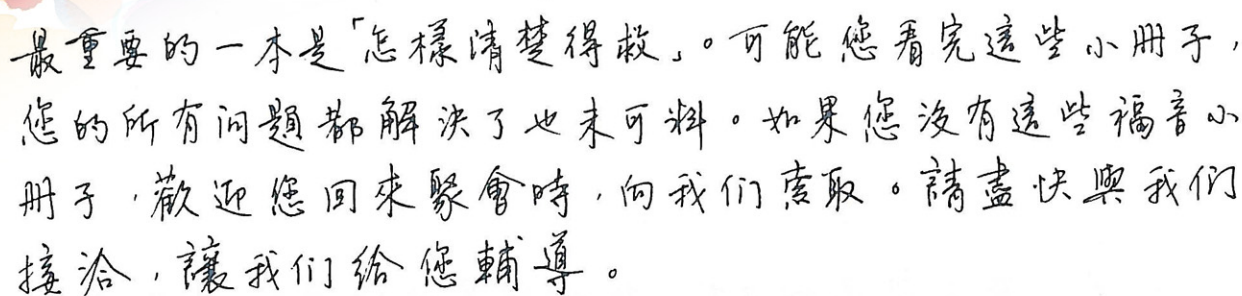 最重要的一本是「怎樣清楚得救」。可能您看完這些小册子，
您的所有问題都解决了也未可料。如果您没有這些福音小
册子，歡迎您回來聚會時，向我们索取。請盡快與我们
接洽，讓我们給您輔導。